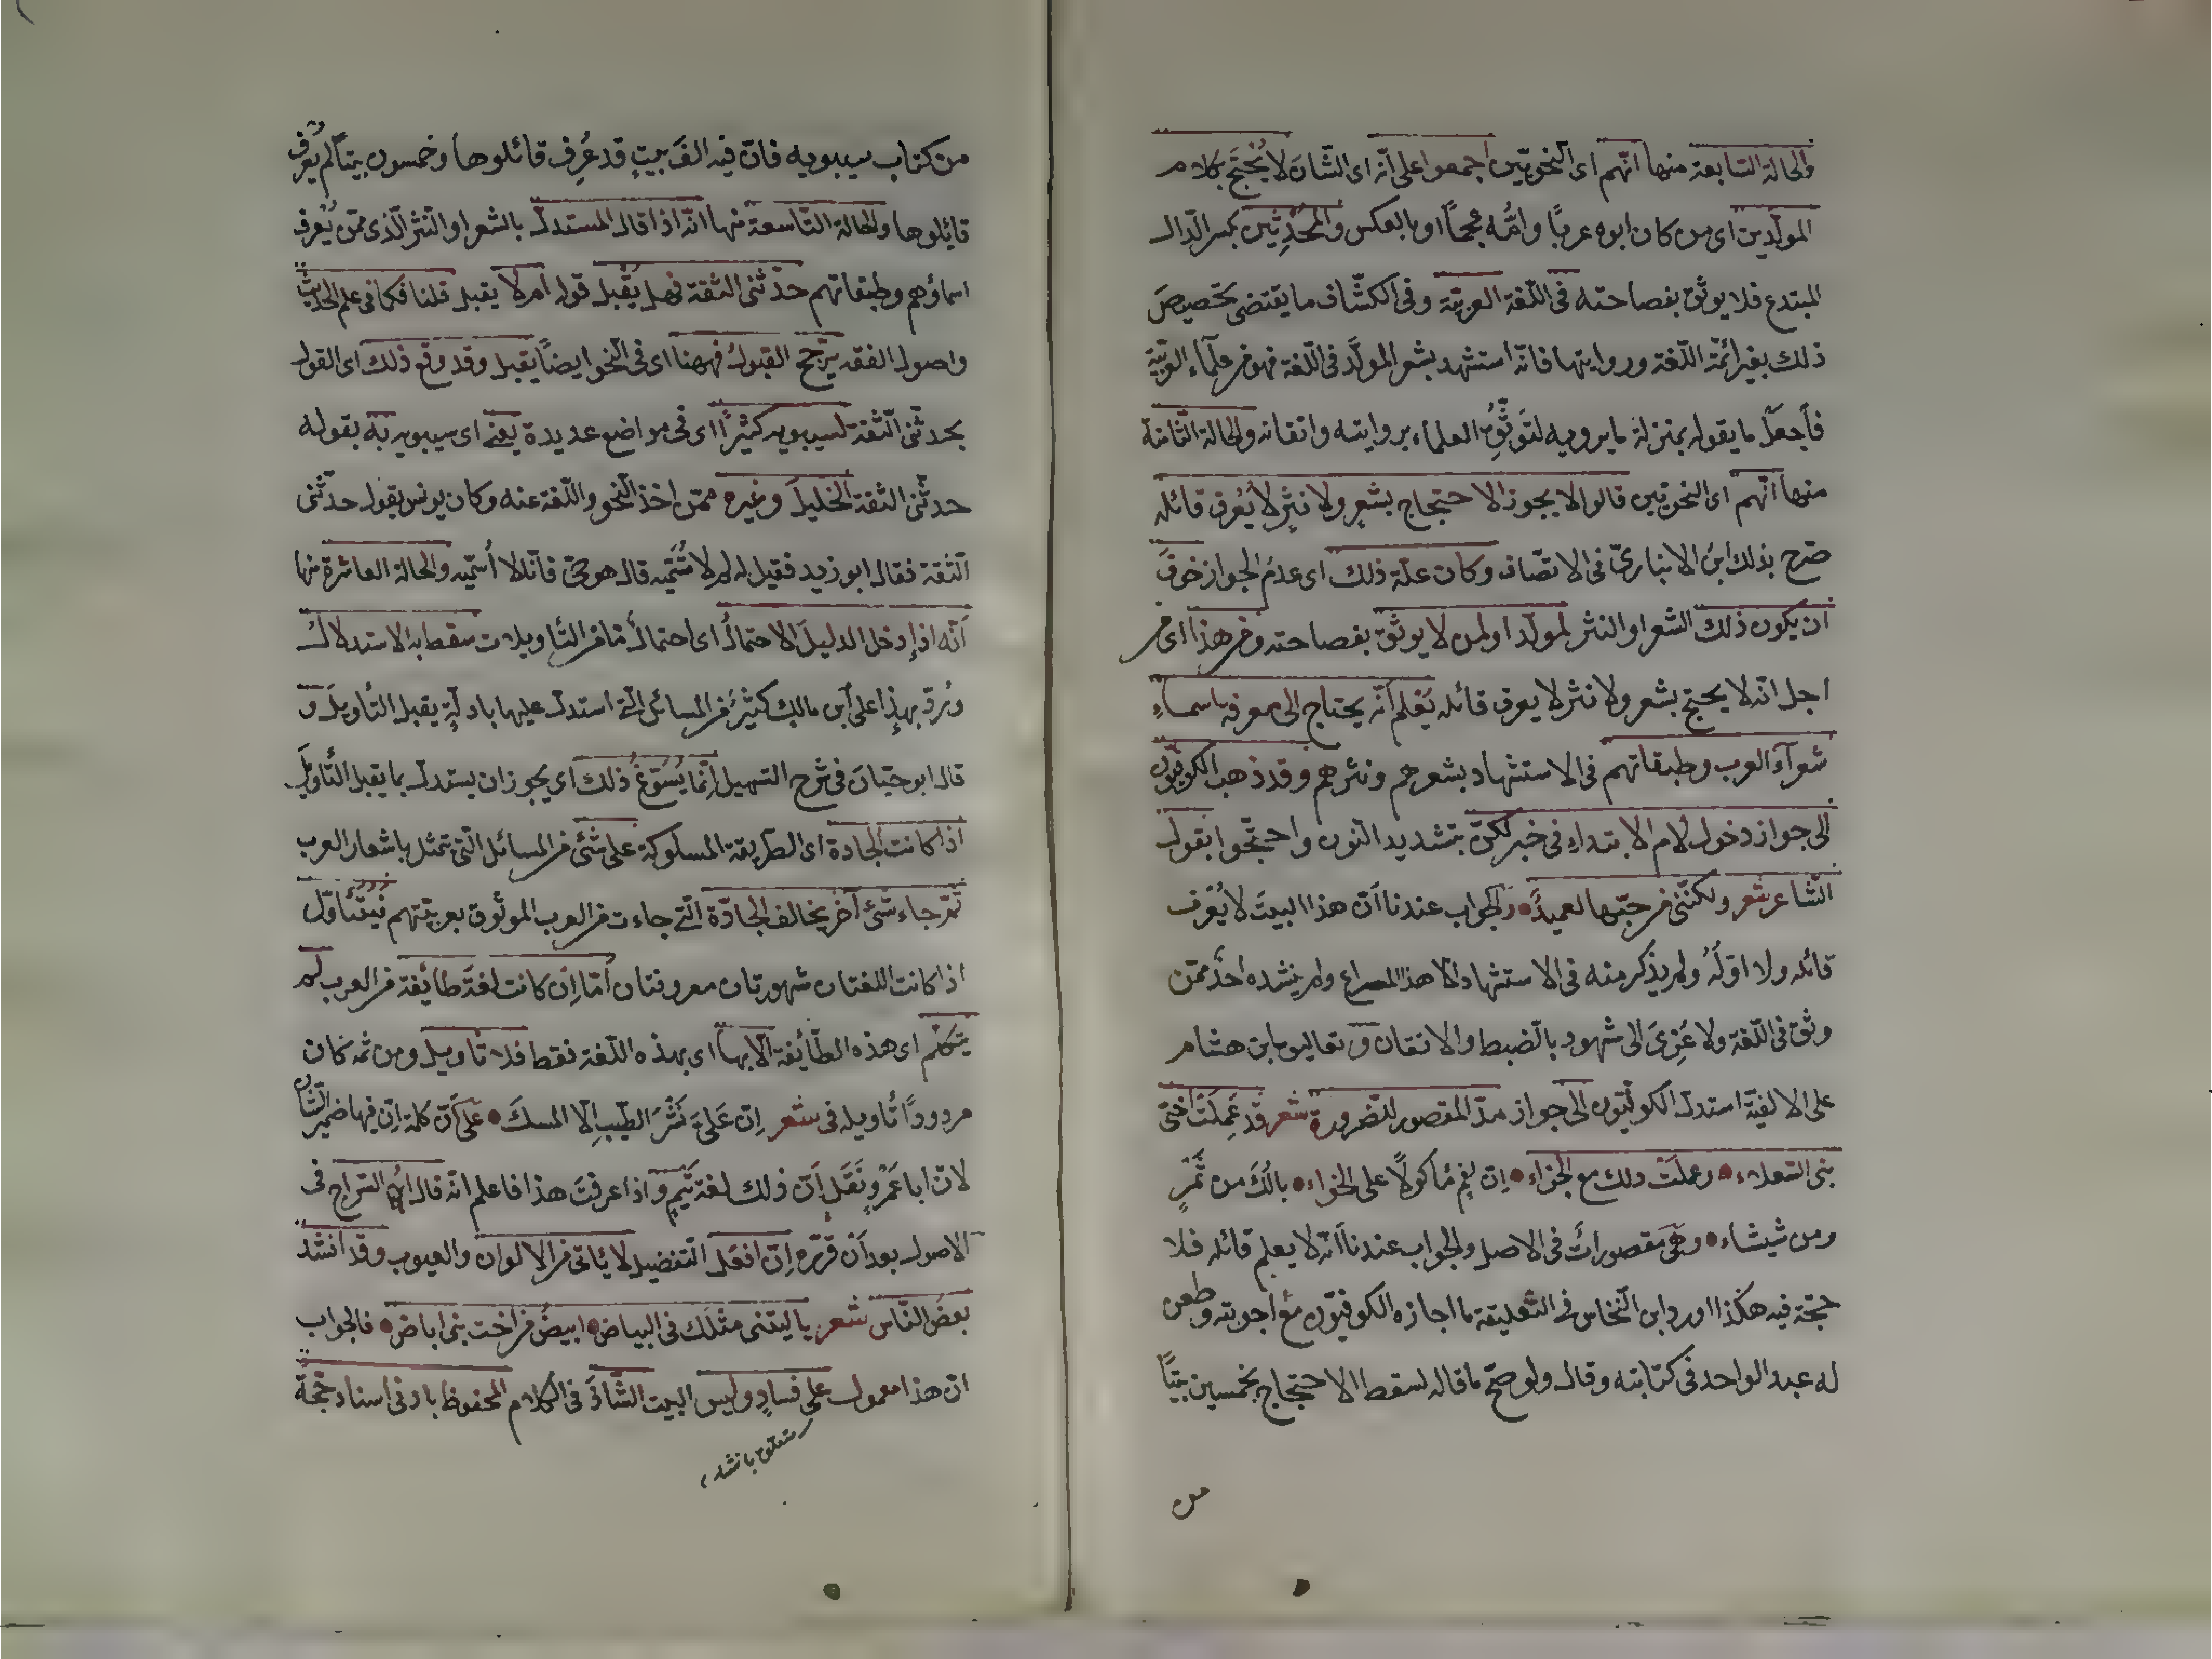 والحالة السابعة منها انّهم اى النحويّين اجمعوا على انّه اى الشّان لا يُحتجّ بكلام
المولّدين اى من كان ابوه عربيًا وامّه عجميًا او بالعكس والمُحدِثين بكسر الدّال
المبتدع فلا يوثق بفصاحته فى اللّغة العربيّة وفى الكشّاف ما يقتضى تخصيصَ
ذلك بغير ائمّة اللّغة ورواتها فانّه استشهد بشعر المولّد فى اللّغة فهو من علمآء العربيّة
فاَجعَلُ ما يقوله بمنزلة ما يرويه لتَوثّقِ العلماء بروايته واتقانه والحالة الثّامنة
منها انّهم اى النحويّين قالوا لا يجوز الاحتجاج بشعرٍ ولا نثرٍ لا يُعرف قائله
صرّح بذلك ابنُ الانبارىّ فى الانصاف وكان علّة ذلك اى عدمُ الجواز خوفَ
ان يكون ذلك الشعر او النثر لمولّد او لمن لا يوثق بفصاحته ومن هذا اى من
اجل انّه لا يحتجّ بشعر ولا نثر لا يعرف قائله يُعْلم انّه يحتاج الى معرفة باسماءِ
شعرآء العرب وطبقاتهم فى الاستشهاد بشعرهم ونثرهم وقد ذهب الكوفيّون
الى جواز دخول لام الابتداءِ فى خبر لكنّ بتشديد النّون واحتجّوا بقول
الشّاعر شعر ولكنّنى من حبّها لعميدُ • والجواب عندنا اَنّ هذا البيتَ لا يُعْرف
قائله ولا اوّلُه ولم يذكر منه فى الاستشهاد الّا هذا المصراع ولم ينشده احدٌ ممّن
وثق فى اللّغة ولا عُزِىَ الى شهود بالضبط والاتقان و تعاليق ابن هشام
على الالفيّة استدلّ الكوفيّون الى جواز مدّ المقصور للضّرورة شعر قد عَلِمَتْ اختُ
بنى السّعلاء • وعلمَتْ ذلك مع الجزاءِ • اِن نِعْمَ مأكولًا على الخواءِ • يا لَكَ من تَمْرٍ
ومن شيشاء • وهى مقصوراتٌ فى الاصل والجواب عندنا اَنّه لا يعلم قائله فلا
حجّة فيه هكذا اورد ابن النّحاس فى التّعليقة ما اجازه الكوفيّون مع اجوبته وطعن
له عبد الواحد فى كتابته وقال ولو صحّ ما قاله لسقط الاحتجاج بخمسين بيتًا
من
من كتاب سيبويه فانّ فيه الفَ بيتٍ قد عُرِف قائلوها وخمسون بيتًا لم يُعْرف
قائلوها والحالة التّاسعة منها انّه اذا قال المستدلّ بالشعر او النّثر الّذى ممّن يُعْرف
اسماؤهم وطبقاتهم حدّثنى الثقة فهل يُقْبل قوله ام لا يقبل قلنا فكما فى علم الحديث
واصول الفقه يُرجّح القبولُ فههنا اى فى النّحو ايضًا يقبل وقد وقع ذلك اى القول
بحدثنى الثّقة لسيبويه كثيرًا اى فى مواضع عديدة يعنى اى سيبويه به بقوله
حدثّنى الثقة الخليلَ وغيره ممّن اخذ النّحو واللّغة عنه وكان يونس يقول حدثّنى
الثّقة فقال ابو زيد فقيل له لم لا تُسَمّيه قال هو حىّ فانا لا اُسمّيه والحالة العاشرة منها
اَنّه اذا دخل الدليلَ الاحتمالُ اى احتمالٌ ما من التّاويلات سقط به الاستدلالُ
ورُدّ بهذا على ابن مالك كثيرٌ من المسائل الّتى استدلّ عليها بادلّةٍ يقبل التّاويلَ و
قال ابو حيّانَ فى شرح التسهيل اِنّما يُسَوّغ ذلك اى يجوز ان يستدلّ بما يقبل التّاويلَ
اذا كانت الجادة اى الطريقة المسلوكة على شئ من المسائل الّتى تتمثّل باشعار العرب
ثمّ جاء شئ آخر يخالف الجادّة الّتى جاءت من العرب الموثوق بعربيّتهم فيُتَاَوّل
اذا كانت اللغتان مشهورتان معروفتان امّا اِن كانت لغةَ طائفة من العرب لم
يتكلّم اى هذه الطّائفة الّا بها اى بهذه اللّغة فقط فلا تاويل ومن ثمّ كان
مردودًا تاويله فى شعر اِن عَلىَّ نَثْرَ الطّيبِ الّا المسكَ • على اَنّ كلمة اِنّ فيها ضميرُ الشّان
لانّ ابا عَمْرٍو نَقَل اَنّ ذلك لغة تميم و اذا عرفتَ هذا فاعلم انّه قال ابنُ السّراج فى
الاصول بعد اَن قرّره اِنّ افعَل التّفضيل لا يأتى من الالوان والعيوب وقد انشد
بعضُ النّاس شعر يا ليتنى مثلَك فى البياض • ابيضُ من اخت بنى اباض • فالجواب
انّ هذا معمول على فسادٍ وليس البيت الشّاذّ فى الكلام المحفوظ بادنى اسناد حجّةً
متعلّق بانشد